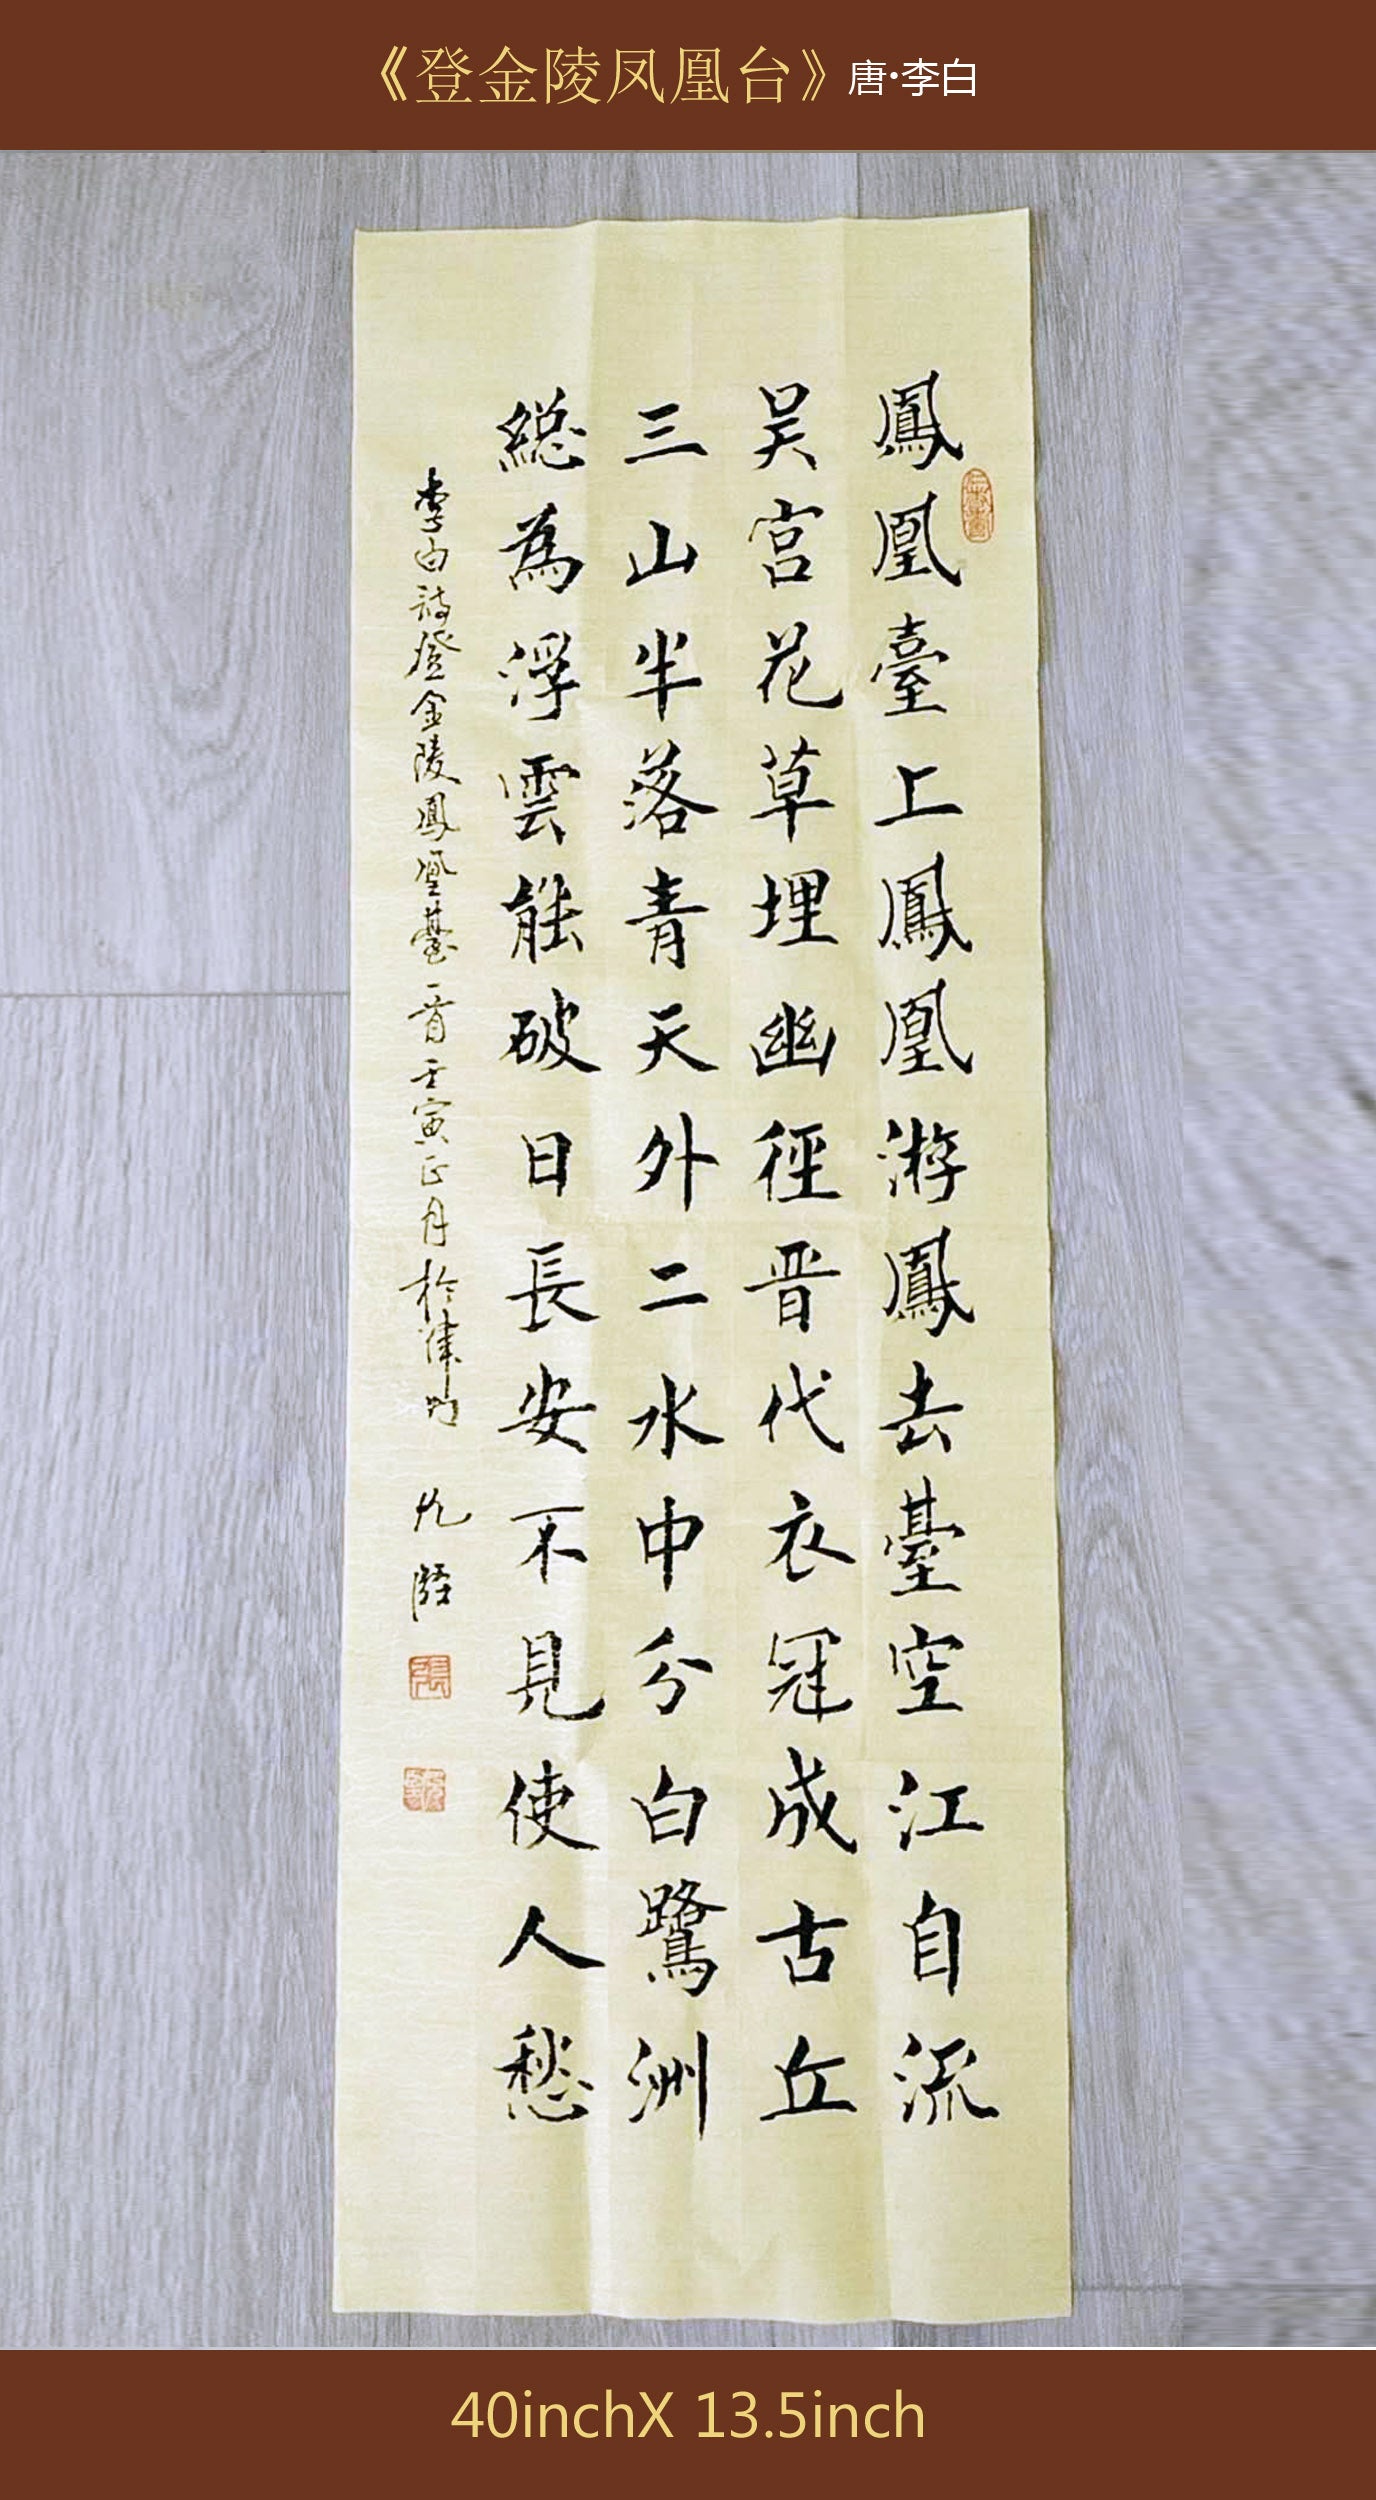 《登金陵凤凰台》唐·李白
鳳凰臺上鳳凰游鳳去臺空江自流
吴宫花草埋幽徑晋代衣冠成古丘
三山半落青天外二水中分白鷺洲
総為浮雲能破日長安不見使人愁
李白詩登金陵鳳凰臺一首壬寅正月於津門
張
40inchX 13.5inch